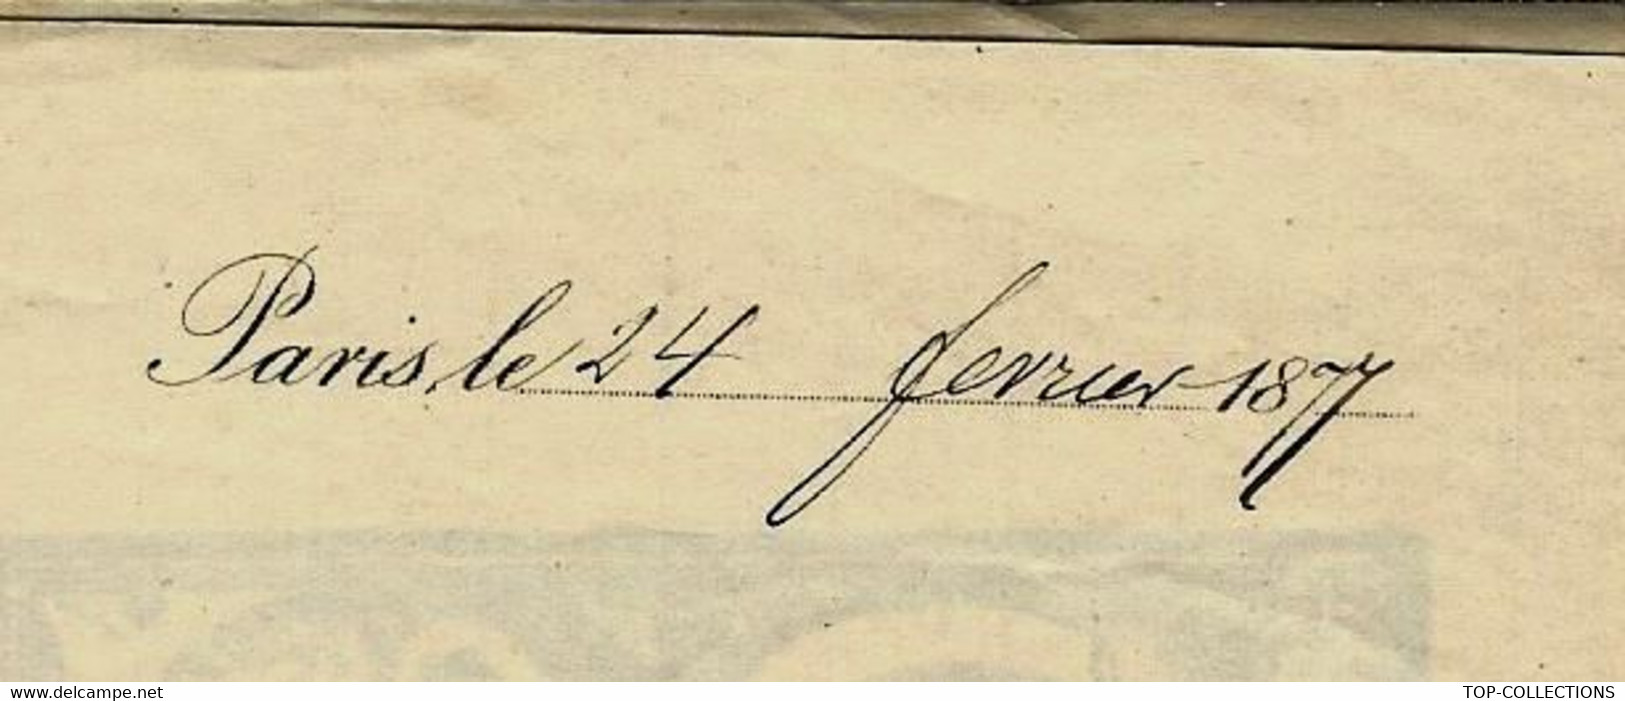 Paris, le 24 fevrier 1877
delcampe.com
TOP-COLLECTIONS